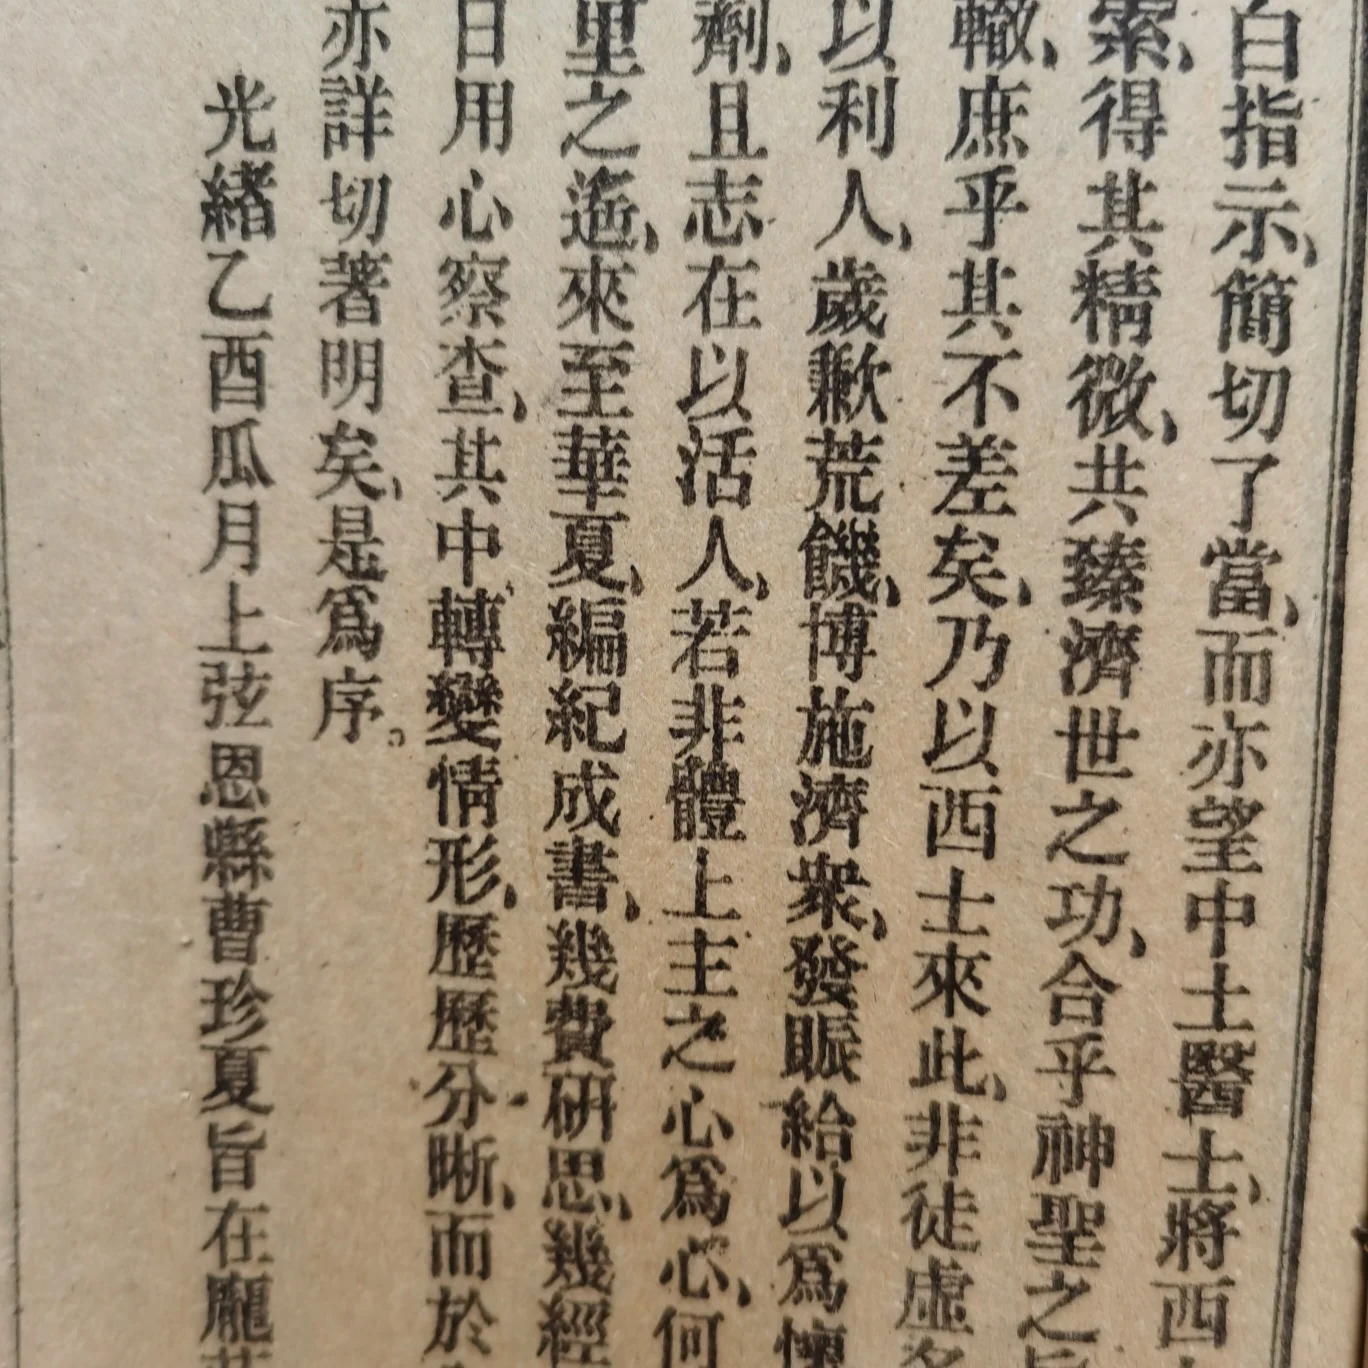 白指示、簡切了當、而亦望中土醫士、將西
索、得其精微、共臻濟世之功、合乎神聖之
轍、庶乎其不差矣、乃以西士來此、非徒虛
以利人、歲歉荒饑、博施濟衆、發賑給以爲
劑、且志在以活人、若非體上主之心爲心、何
里之遙、來至華夏、編紀成書、幾費研思、幾經
日用心察查、其中轉變情形、歷歷分晰、而於
亦詳切著明矣、是爲序。
光緒乙酉瓜月上弦恩縣曹珍夏旨在龐